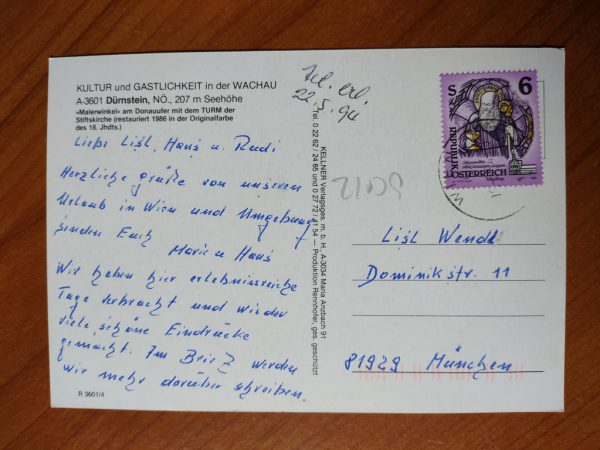 KULTUR und GASTLICHKEIT in der WACHAU
A-3601 Dürnstein, NÖ., 207 m Seehöhe
»Malerwinkel« am Donauufer mit dem TURM der
Stiftskirche (restauriert 1986 in der Originalfarbe
des 18. Jhdts.)
Liebe Lisl, Hans u. Rudi
Herzliche Grüße von unserem
Urlaub in Wien und Umgebung
senden Euch
Marie u Hans
Wir haben hier erlebnisreiche
Tage verbracht und wieder
viele schöne Eindrücke
gemacht. Im Brief werden
wir mehr darüber schreiben.
R 3601/4
22.5.94
KELLNER Verlagsges. m. b. H. A-3034 Maria Anzbach 91
Tel. 0 22 62 / 24 65 und 0 27 72 / 41 54 — Produktion Rennhofer, ges. geschützt
S 6
REPUBLIK
ÖSTERREICH
Lisl Wendl
Dominikstr. 11
81929 München